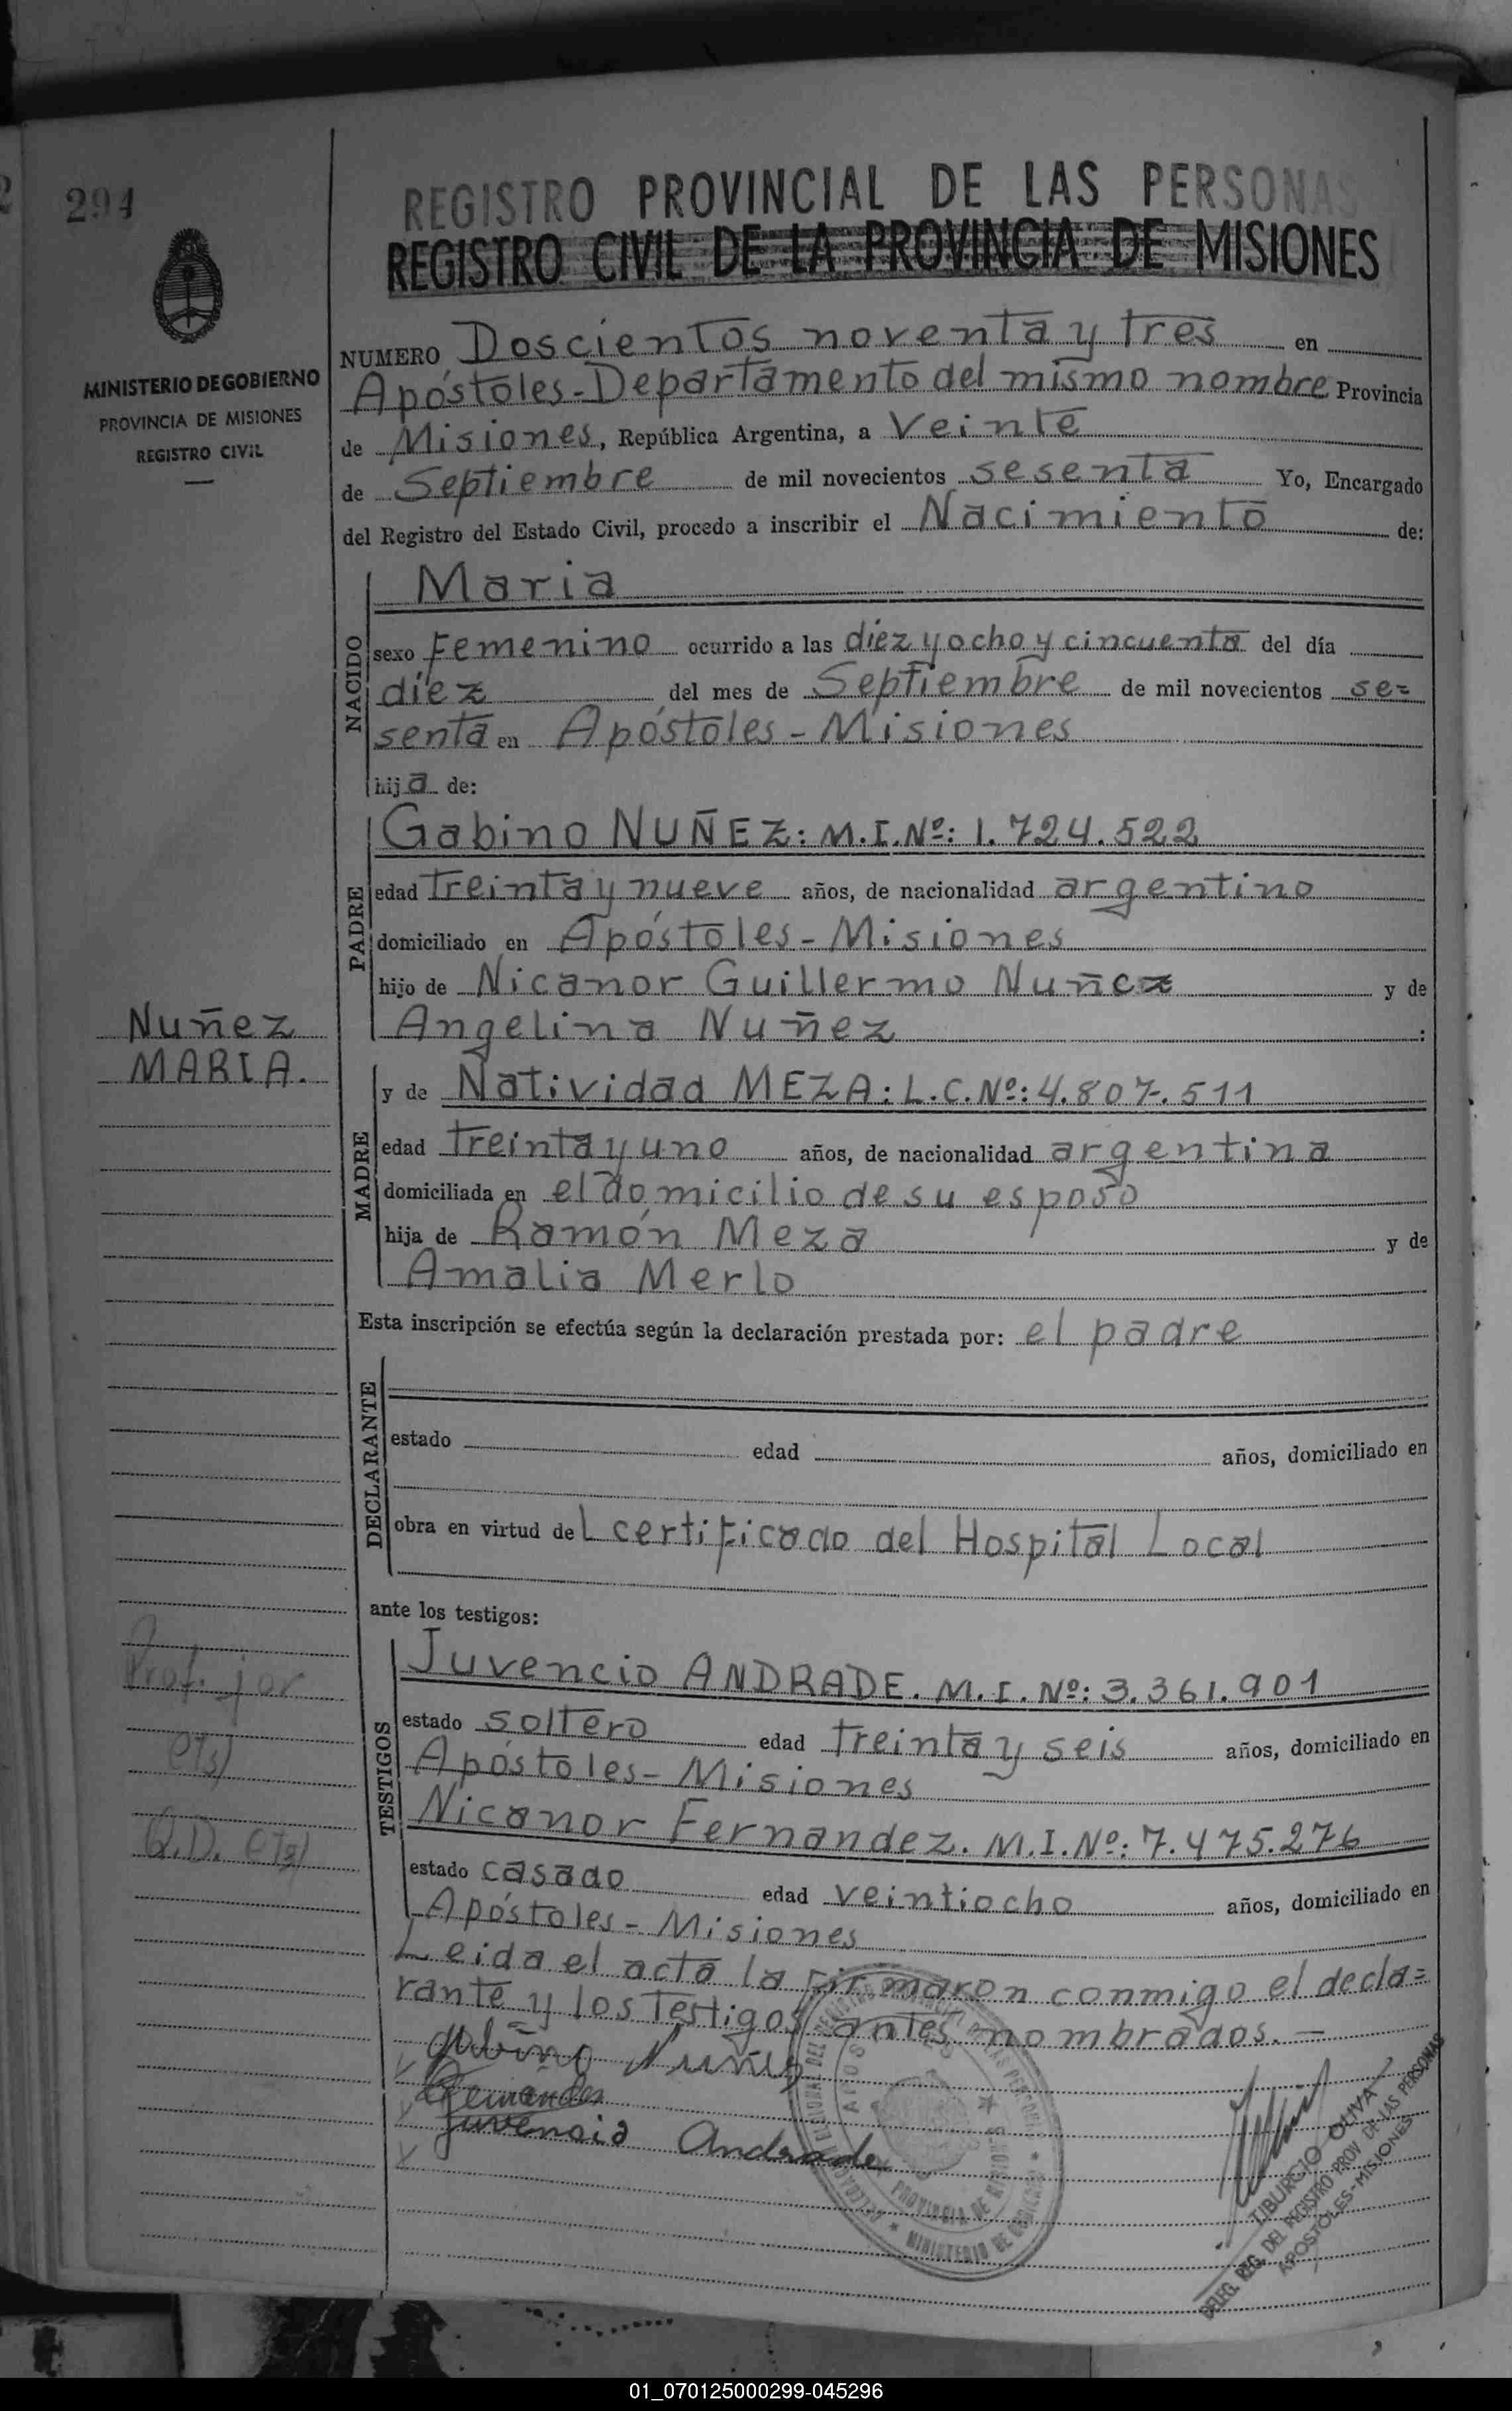 294
MINISTERIO DE GOBIERNO
PROVINCIA DE MISIONES
REGISTRO CIVIL
REGISTRO PROVINCIAL DE LAS PERSONAS
REGISTRO CIVIL DE LA PROVINCIA DE MISIONES
NUMERO Doscientos noventa y tres en
Apóstoles-Departamento del mismo nombre Provincia
de Misiones, República Argentina, a Veinte
de Septiembre de mil novecientos sesenta Yo, Encargado
del Registro del Estado Civil, procedo a inscribir el Nacimiento de:
NACIDO
Maria
sexo Femenino ocurrido a las diez y ocho y cincuenta del día
diez del mes de Septiembre de mil novecientos se=
senta en Apóstoles-Misiones
hija de:
PADRE
Gabino NUÑEZ: M.I.Nº: 1.724.522
edad treinta y nueve años, de nacionalidad argentino
domiciliado en Apóstoles-Misiones
hijo de Nicanor Guillermo Nuñez y de
Angelina Nuñez :
Nuñez
MARIA.
MADRE
y de Natividad MEZA: L.C.Nº: 4.807.511
edad treinta y uno años, de nacionalidad argentina
domiciliada en el domicilio de su esposo
hija de Ramón Meza y de
Amalia Merlo
Esta inscripción se efectúa según la declaración prestada por: el padre
DECLARANTE
estado edad años, domiciliado en
obra en virtud del certificado del Hospital Local
ante los testigos:
TESTIGOS
Juvencio ANDRADE. M.I. Nº: 3.361.901
estado soltero edad treinta y seis años, domiciliado en
Apóstoles-Misiones
Nicanor Fernandez. M.I.Nº: 7.475.276
estado casado edad veintiocho años, domiciliado en
Apóstoles-Misiones
Leida el acta la firmaron conmigo el decla=
rante y los testigos antes nombrados.-
Gabino Nuñez
Fernandez
Juvencio Andrade
PROVINCIA DE MISIONES
TIBURCIO OLIVA
DELEG. REG. DEL REGISTRO PROV DE LAS PERSONAS
APOSTOLES-MISIONES
01_070125000299-045296